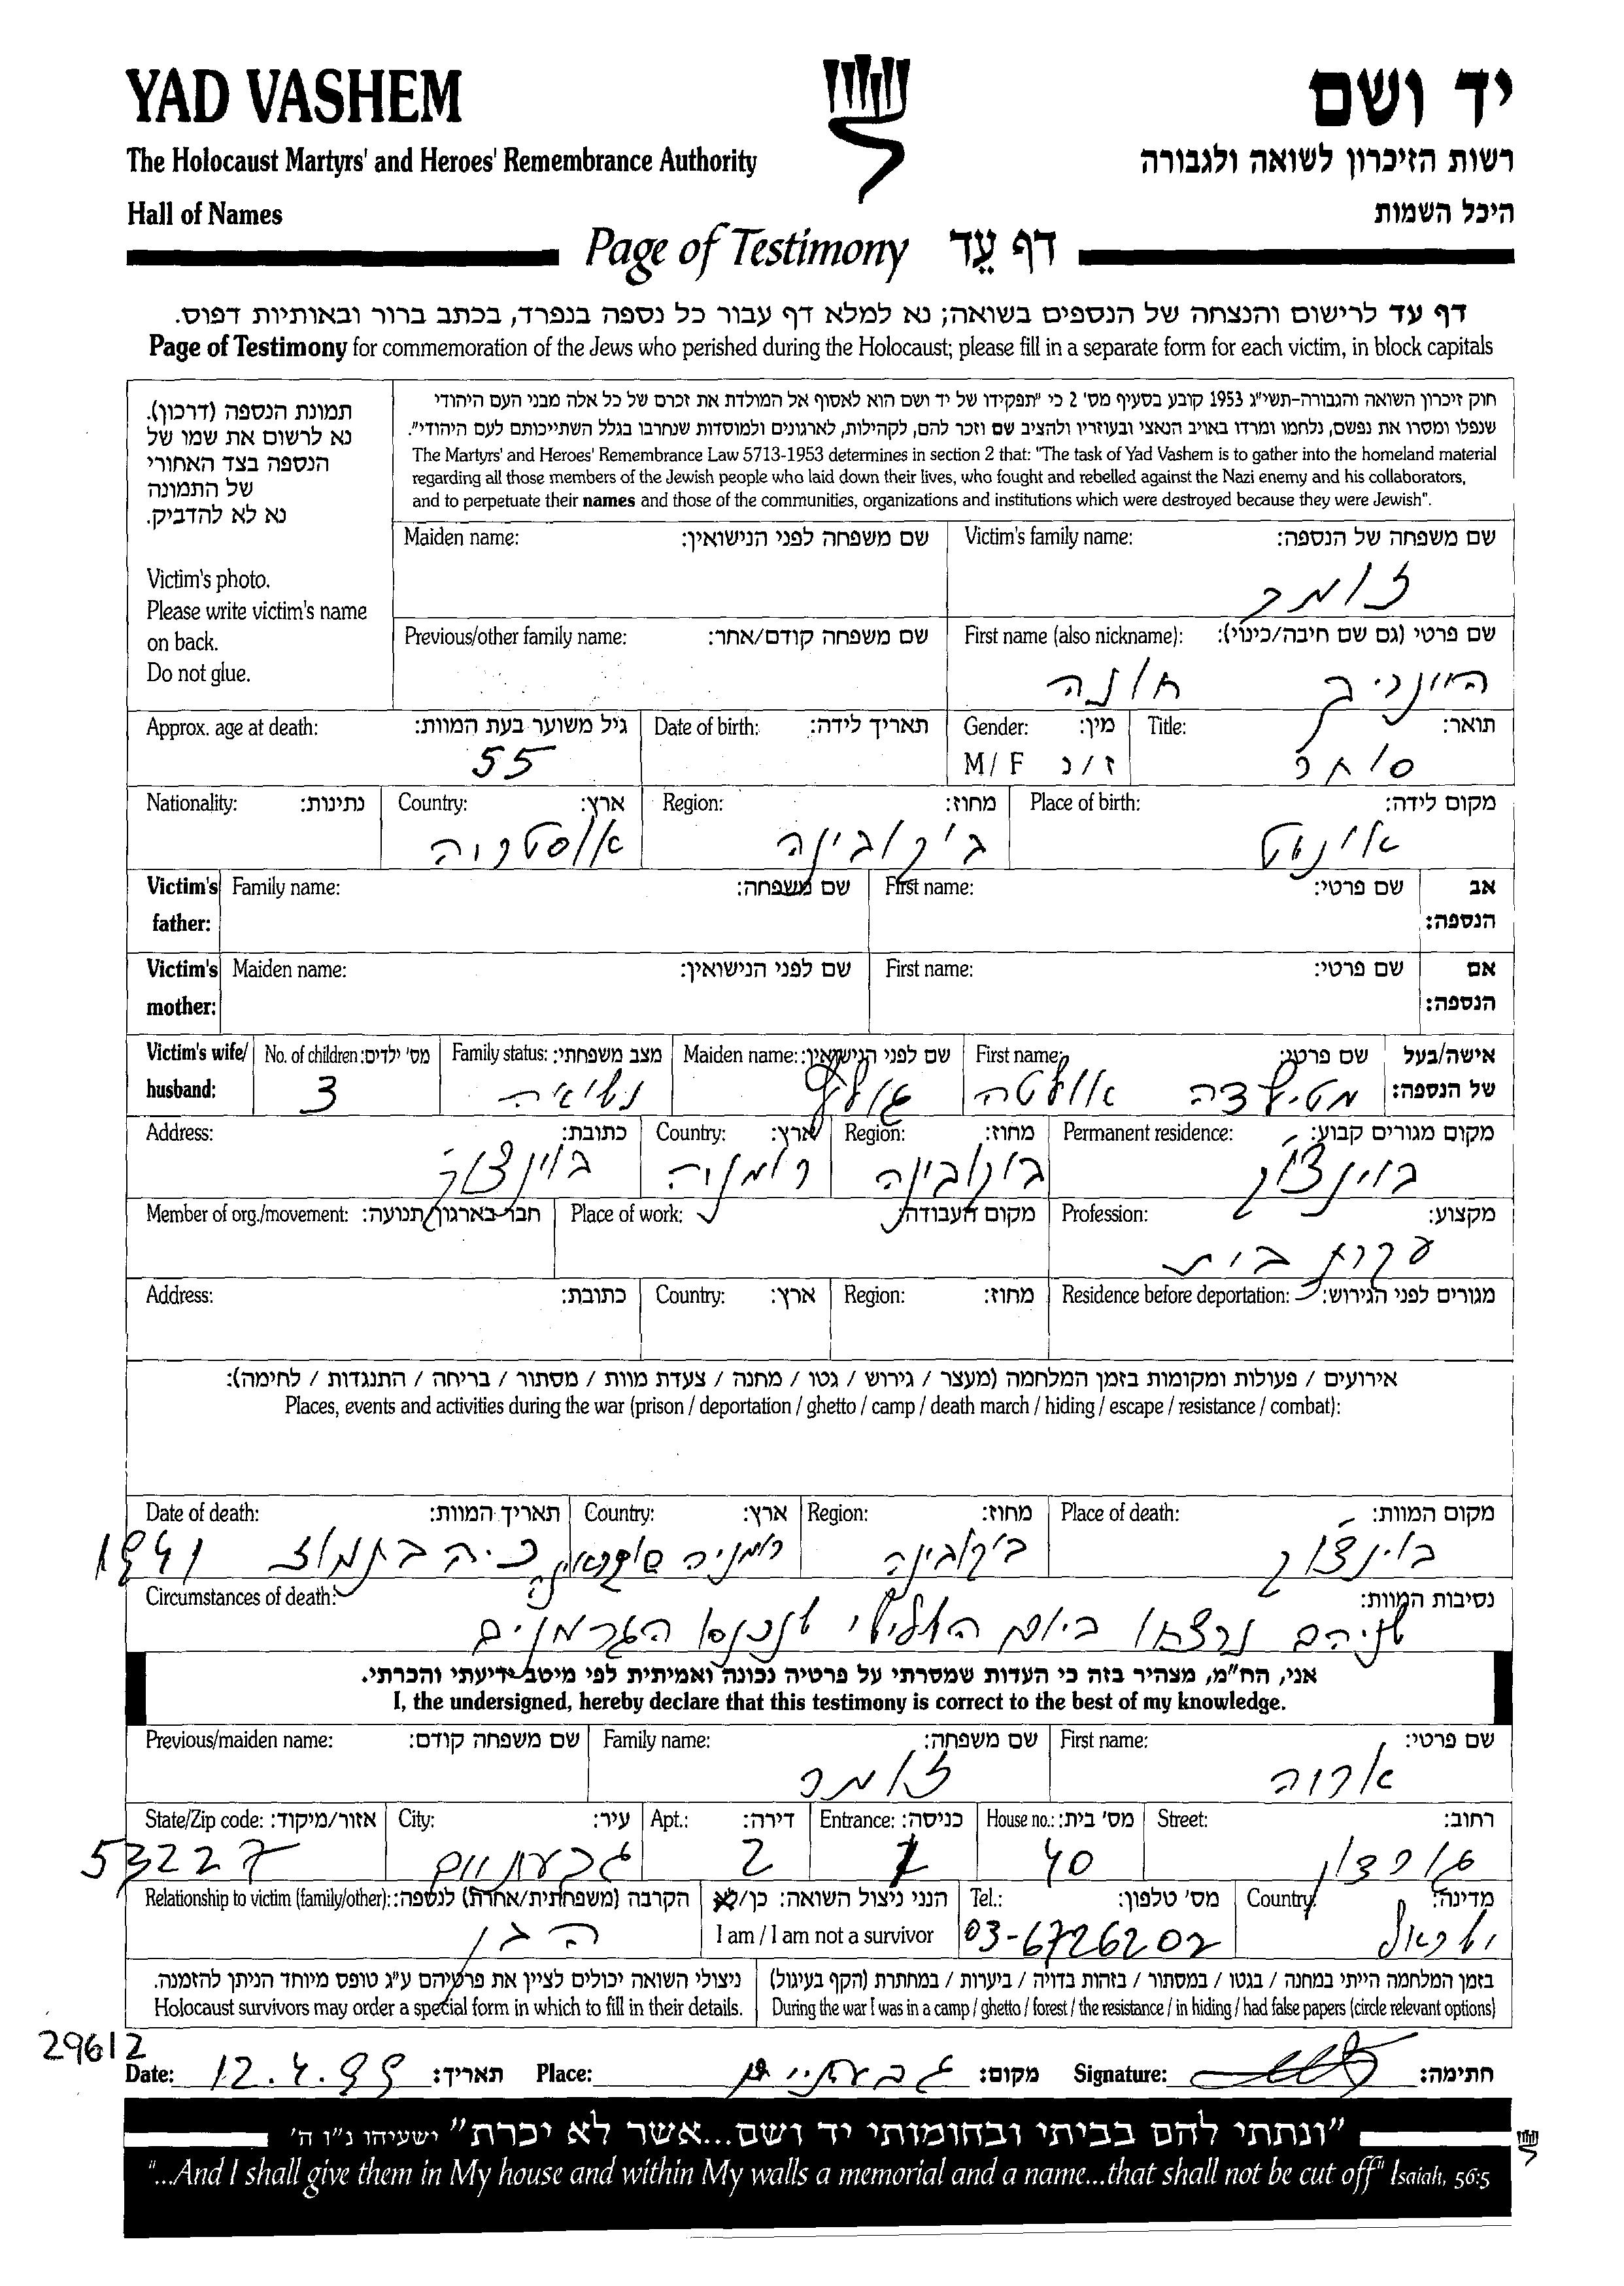 YAD VASHEM
יד ושם
The Holocaust Martyrs' and Heroes' Remembrance Authority
רשות הזיכרון לשואה ולגבורה
Hall of Names
היכל השמות
Page of Testimony דף עֵד
דף עד לרישום והנצחה של הנספים בשואה; נא למלא דף עבור כל נספה בנפרד, בכתב ברור ובאותיות דפוס.
Page of Testimony for commemoration of the Jews who perished during the Holocaust; please fill in a separate form for each victim, in block capitals
תמונת הנספה (דרכון).
נא לרשום את שמו של
הנספה בצד האחורי
של התמונה
נא לא להדביק.
Victim's photo.
Please write victim's name
on back.
Do not glue.
חוק זיכרון השואה והגבורה-תשי"ג 1953 קובע בסעיף מס' 2 כי "תפקידו של יד ושם הוא לאסוף אל המולדת את זכרם של כל אלה מבני העם היהודי
שנפלו ומסרו את נפשם, נלחמו ומרדו באויב הנאצי ובעוזריו ולהציב שם וזכר להם, לקהילות, לארגונים ולמוסדות שנחרבו בגלל השתייכותם לעם היהודי".
The Martyrs' and Heroes' Remembrance Law 5713-1953 determines in section 2 that: "The task of Yad Vashem is to gather into the homeland material
regarding all those members of the Jewish people who laid down their lives, who fought and rebelled against the Nazi enemy and his collaborators,
and to perpetuate their names and those of the communities, organizations and institutions which were destroyed because they were Jewish".
Maiden name: שם משפחה לפני הנישואין: Victim's family name: שם משפחה של הנספה:
זומר
Previous/other family name: שם משפחה קודם/אחר: First name (also nickname): שם פרטי (גם שם חיבה/כינוי):
היינריך חונה
Approx. age at death: גיל משוער בעת המוות: Date of birth: תאריך לידה: Gender: מין: Title: תואר:
55 M / F ז / נ סוחר
Nationality: נתינות: Country: ארץ: Region: מחוז: Place of birth: מקום לידה:
אוסטריה בוקובינה
Victim's father: Family name: שם משפחה: First name: שם פרטי: אב הנספה:
Victim's mother: Maiden name: שם לפני הנישואין: First name: שם פרטי: אם הנספה:
Victim's wife/ husband: No. of children: מס' ילדים: Family status: מצב משפחתי: Maiden name: שם לפני הנישואין: First name: שם פרטי: אישה/בעל של הנספה:
3 נשואה מטילדה
Address: כתובת: Country: ארץ: Region: מחוז: Permanent residence: מקום מגורים קבוע:
רומניה בוקובינה
Member of org./movement: חבר בארגון/תנועה: Place of work: מקום העבודה: Profession: מקצוע:
עקרת בית
Address: כתובת: Country: ארץ: Region: מחוז: Residence before deportation: מגורים לפני הגירוש:
אירועים / פעולות ומקומות בזמן המלחמה (מעצר / גירוש / גטו / מחנה / צעדת מוות / מסתור / בריחה / התנגדות / לחימה):
Places, events and activities during the war (prison / deportation / ghetto / camp / death march / hiding / escape / resistance / combat):
Date of death: תאריך המוות: Country: ארץ: Region: מחוז: Place of death: מקום המוות:
1941 בתמוז רומניה בוקובינה
Circumstances of death: נסיבות המוות:
שניהם נרצחו ביום השלישי שנכנסו הגרמנים
אני, הח"מ, מצהיר בזה כי העדות שמסרתי על פרטיה נכונה ואמיתית לפי מיטב ידיעתי והכרתי.
I, the undersigned, hereby declare that this testimony is correct to the best of my knowledge.
Previous/maiden name: שם משפחה קודם: Family name: שם משפחה: First name: שם פרטי:
זומר אריה
State/Zip code: אזור/מיקוד: City: עיר: Apt.: דירה: Entrance: כניסה: House no.: מס' בית: Street: רחוב:
53227 גבעתיים 2 1 40
Relationship to victim (family/other): הקרבה (משפחתית/אחרת) לנספה: הנני ניצול השואה: כן/לא Tel.: מס' טלפון: Country: מדינה:
הבן I am / I am not a survivor 03-6726202 ישראל
ניצולי השואה יכולים לציין את פרטיהם ע"ג טופס מיוחד הניתן להזמנה.
Holocaust survivors may order a special form in which to fill in their details.
בזמן המלחמה הייתי במחנה / בגטו / במסתור / בזהות בדויה / ביערות / במחתרת (הקף בעיגול)
During the war I was in a camp / ghetto / forest / the resistance / in hiding / had false papers (circle relevant options)
29612
Date: 12.4.99 תאריך: Place: גבעתיים מקום: Signature: חתימה:
"ונתתי להם בביתי ובחומותי יד ושם...אשר לא יכרת" ישעיהו נ"ו ה'
"...And I shall give them in My house and within My walls a memorial and a name...that shall not be cut off" Isaiah, 56:5